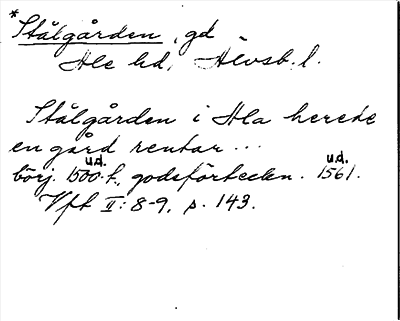 *Stålgården, gd
Ale hd, Älvsb. l.
Stålgården i Ala herede
en gård rentar ...
u.d. u.d.
börj. 1500-t., godsförteckn. 1561.
Vft II: 8-9, s. 143.